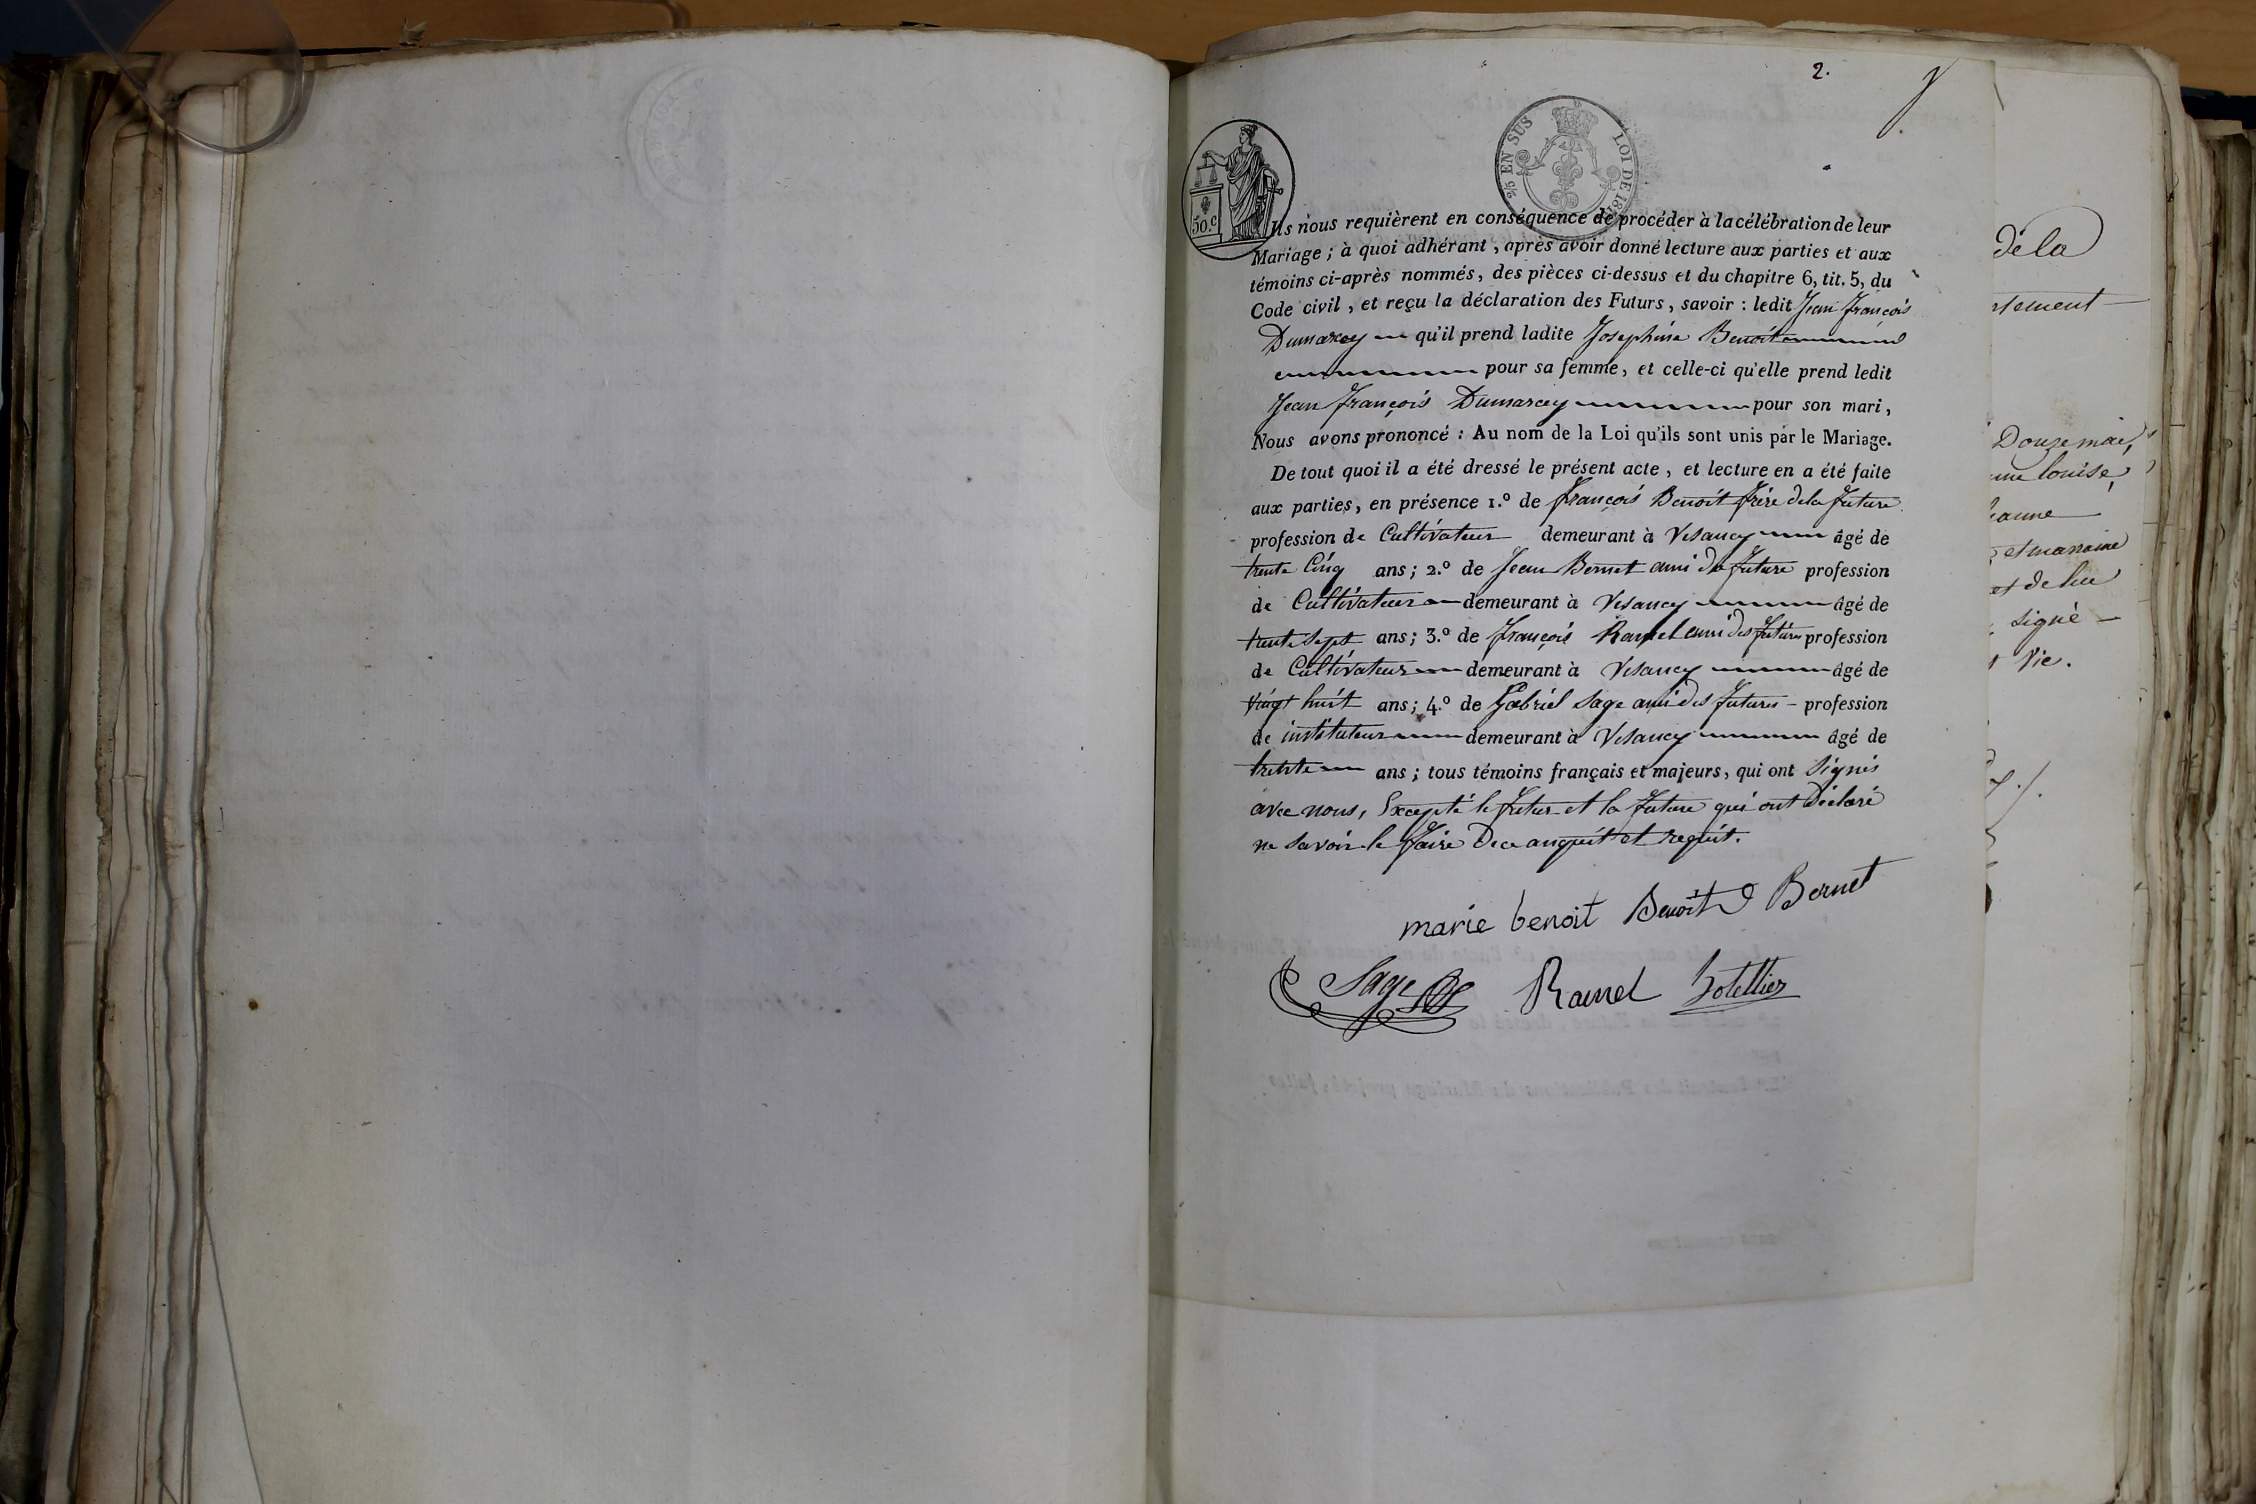 2.
50.c
25 EN SUS LOI DE 18
Ils nous requièrent en conséquence de procéder à la célébration de leur
Mariage ; à quoi adhérant, après avoir donné lecture aux parties et aux
témoins ci-après nommés, des pièces ci-dessus et du chapitre 6, tit. 5, du
Code civil, et reçu la déclaration des Futurs, savoir : ledit Jean François
Dumarcey qu'il prend ladite Josephine Benoit
pour sa femme, et celle-ci qu'elle prend ledit
Jean François Dumarcey pour son mari,
Nous avons prononcé : Au nom de la Loi qu'ils sont unis par le Mariage.
De tout quoi il a été dressé le présent acte, et lecture en a été faite
aux parties, en présence 1.º de François Benoit frère de la future
profession de Cultivateur demeurant à Vesancy âgé de
trente Cinq ans ; 2.º de Jean Bernet ami du future profession
de Cultivateur demeurant à Vesancy âgé de
trente Sept ans ; 3.º de François Ramel ami des futurs profession
de Cultivateur demeurant à Vesancy âgé de
vingt huit ans ; 4.º de Gabriel Sage ami des futurs – profession
de instituteur demeurant à Vesancy âgé de
trente ans ; tous témoins français et majeurs, qui ont Signés
avec nous, Excepté le futur et la future qui ont Déclaré
ne Savoir le faire De ce anquit et requit.
marie benoit Benoit Bernet
Sage Ramel hotellier
de la
rtement
Douze mai,
louise,
et marraine
et de lui
signé –
vie.